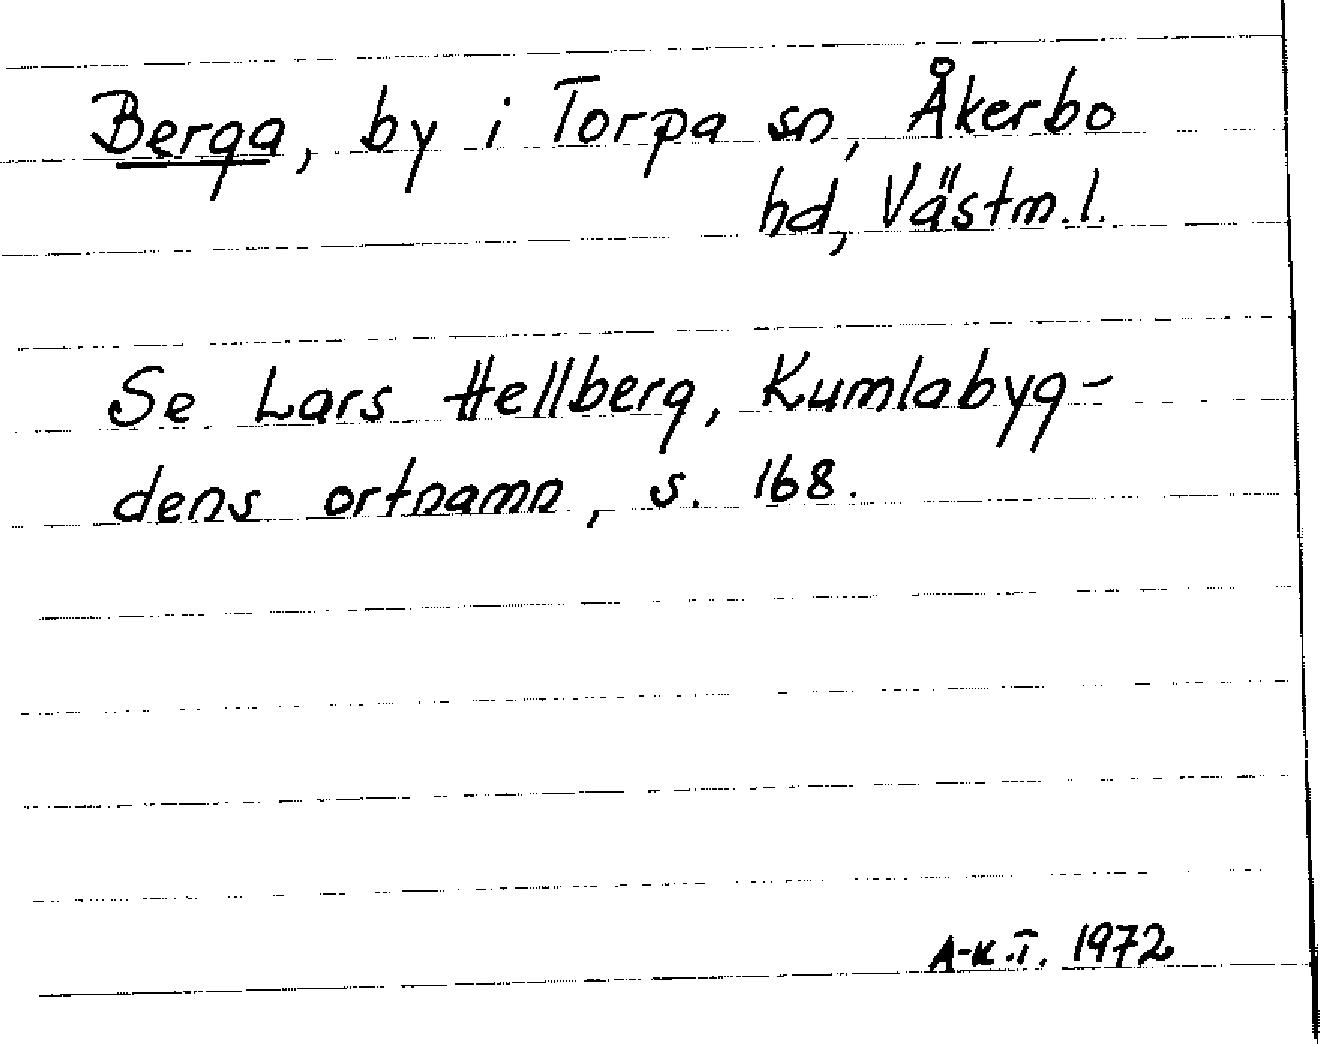 Berga, by i Torpa sn, Åkerbo
hd, Västm.l.
Se Lars Hellberg, Kumlabyg-
dens ortnamn, s. 168.
A-K.T. 1972